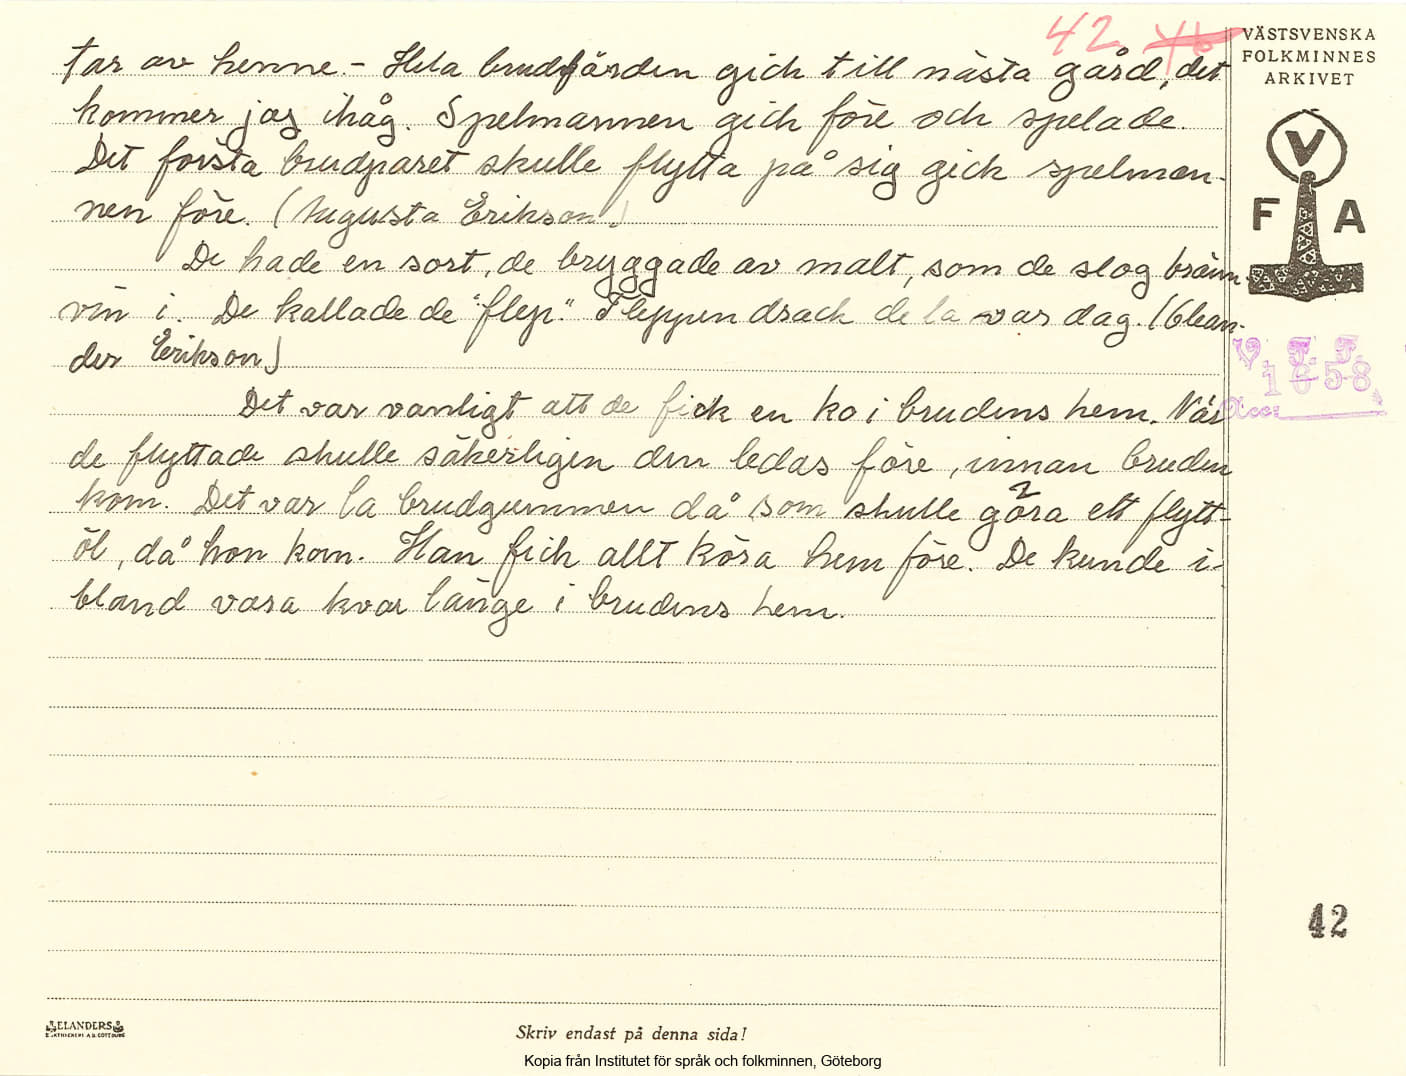 42
VÄSTSVENSKA
FOLKMINNES
ARKIVET
tar av henne. - Hela brudfärden gick till nästa gård, det
kommer jag ihåg. Spelmannen gick före och spelade.
Det första brudparet skulle flytta på sig gick spelman-
nen före. (Augusta Erikson.)
De hade en sort, de bryggade av malt, som de slog bränn-
vin i. De kallade de "flep." Fleppen drack de la var dag. (Olean-
der Erikson)
Det var vanligt att de fick en ko i brudens hem. När
de flyttade skulle säkerligen den ledas före, innan bruden
kom. Det var la brudgummen då som skulle göra ett flytt-
öl, då hon kom. Han fick allt köra hem före. De kunde i-
bland vara kvar länge i brudens hem.
V
F A
V. F. F.
1658
Acc:
42
ELANDERS
Skriv endast på denna sida!
Kopia från Institutet för språk och folkminnen, Göteborg